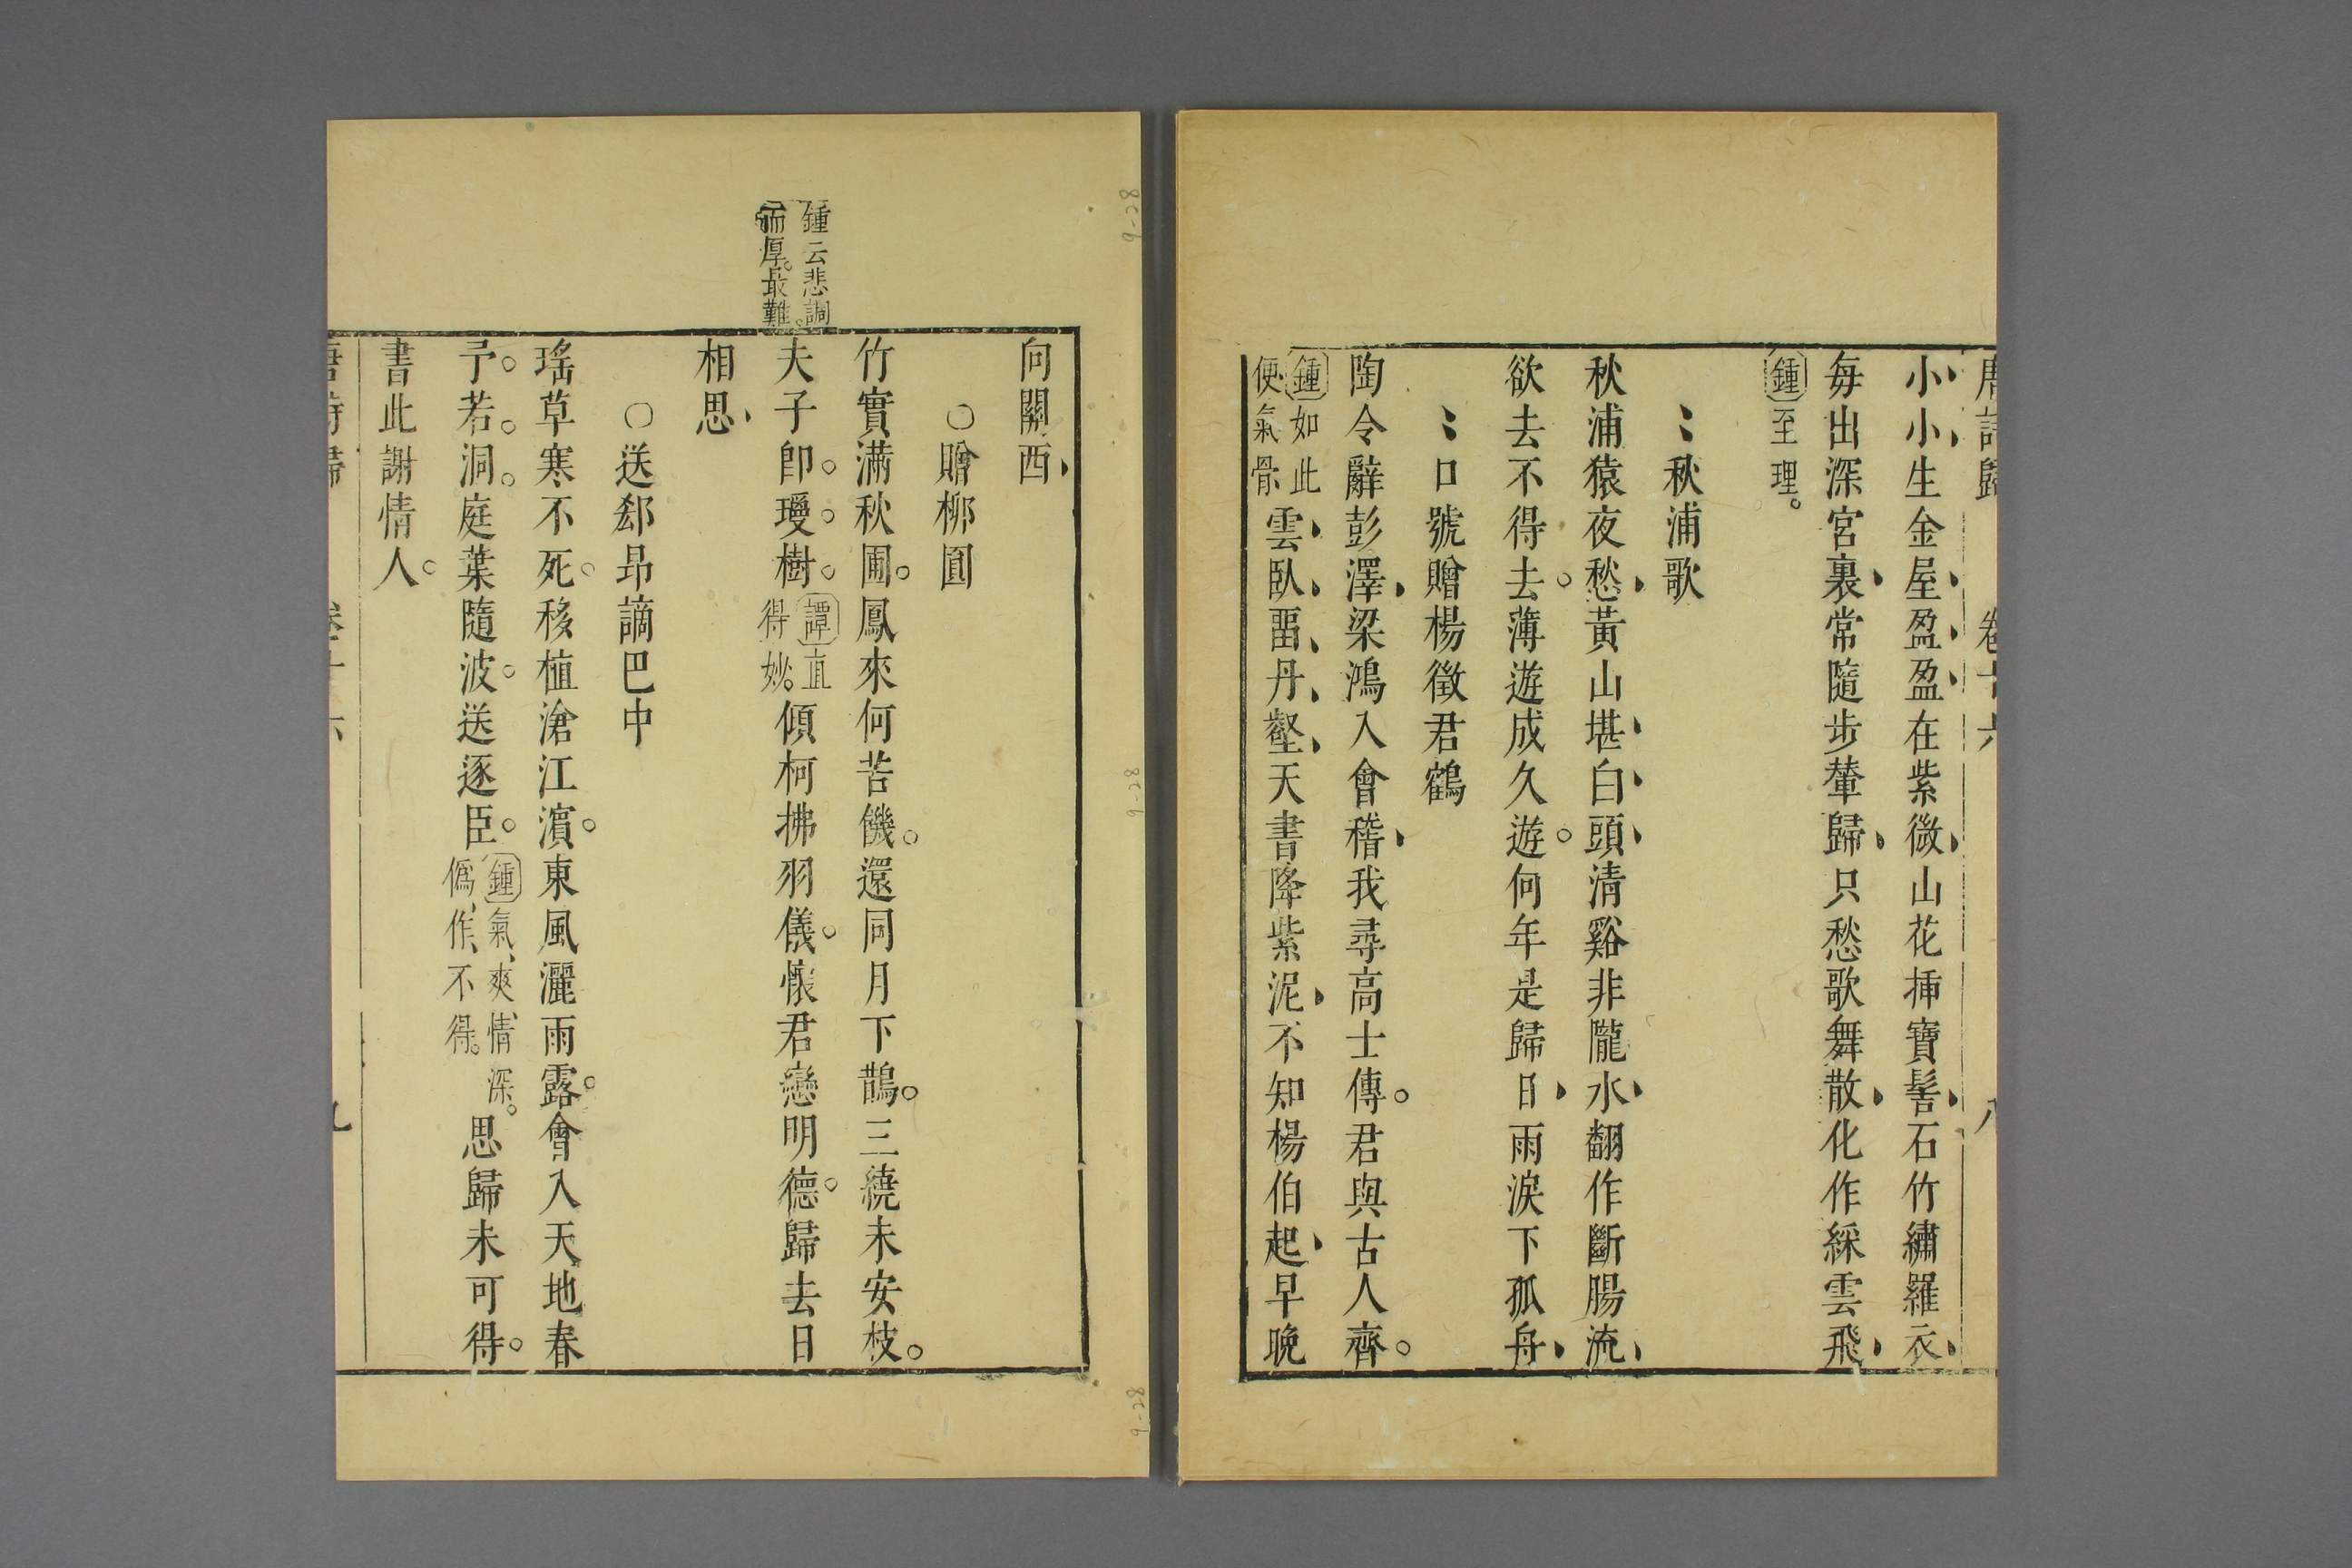 唐詩歸 卷十六 八
小小生金屋盈盈在紫微山花揷寶髻石竹繡羅衣
每出深宮裏常隨步輦歸只愁歌舞散化作綵雲飛
鍾至理。
秋浦歌
秋浦猿夜愁黃山堪白頭清谿非隴水翻作斷腸流
欲去不得去薄遊成久遊何年是歸日雨淚下孤舟
口號贈楊徵君鶴
陶令辭彭澤梁鴻入會稽我尋高士傳君與古人齊
鍾如此
便氣骨
雲臥畱丹壑天書降紫泥不知楊伯起早晚
向關西
○贈栁圓
竹實滿秋圃鳳來何苦饑還同月下鵲三繞未安枝
鍾云悲調
而厚。最難。
夫子卽瓊樹
譚直
得妙。
傾柯拂羽儀懷君戀明德歸去日
相思
○送郄昻謫巴中
瑤草寒不死移植滄江濵東風灑雨露會入天地春
予若洞庭葉隨波送逐臣
鍾氣、爽、情、深。
僞、作、不得。
思歸未可得
書此謝情人
唐詩歸 卷十六 九